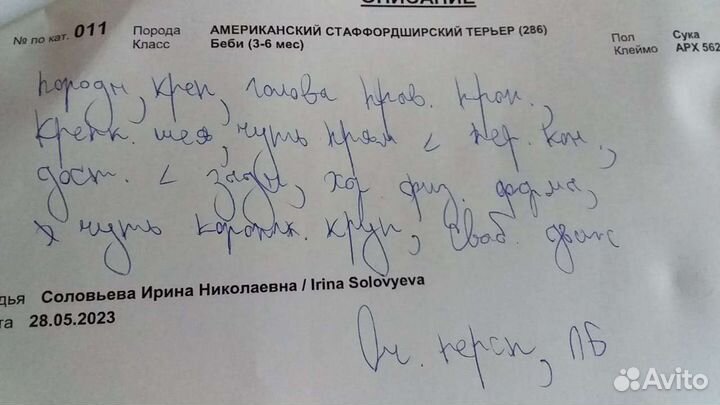 ОПИСАНИЕ
№ по кат. 011 Порода АМЕРИКАНСКИЙ СТАФФОРДШИРСКИЙ ТЕРЬЕР (286) Пол Сука
Класс Беби (3-6 мес) Клеймо АРХ 562
породн, креп, голова прав. проп.,
крепк. шея, чуть прям < пер. кон.,
дост. < задн, хор физ. форма,
чуть коротк. круп, своб. движ
дья Соловьева Ирина Николаевна / Irina Solovyeva
та 28.05.2023
Оч. персп, ЛБ
Avito